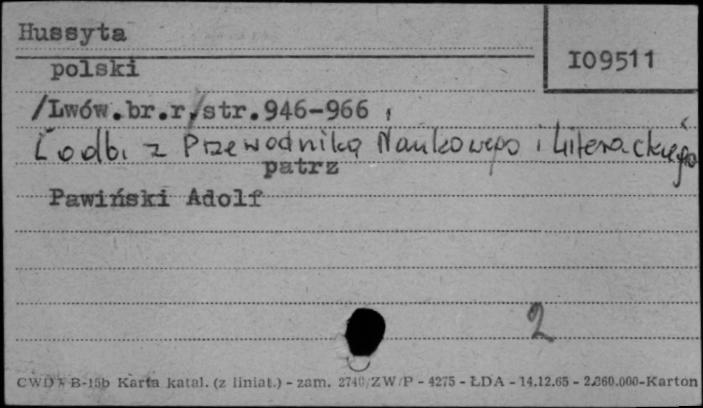 Hussyta
I09511
polski
/Lwów.br.r/str.946-966,
[odb. z Przewodnika Naukowego i Literackiego
patrz
Pawiński Adolf
2
CWD B-15b Karta katal. (z liniat.) - zam. 2740/ZW/P - 4275 - ŁDA - 14.12.65 - 2.860.000-Karton